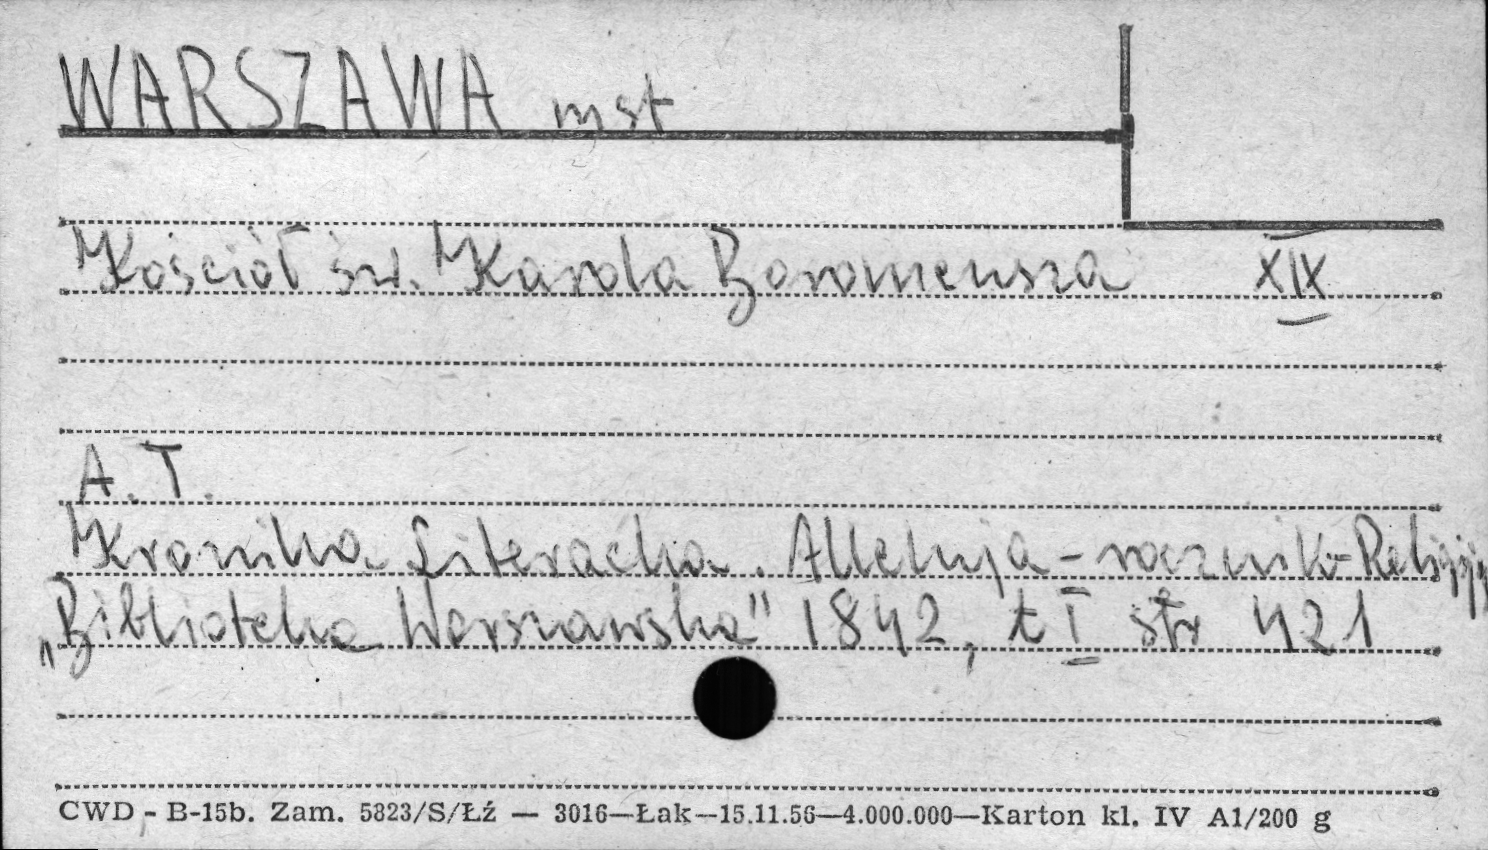 WARSZAWA mst
Kościół św. Karola Boromeusza XIX
A.T.
Kronika Literacka. Alleluja - rocznik Religijny
„Biblioteka Warszawska" 1842, t I str 421
CWD - B-15b. Zam. 5823/S/Łź — 3016—Łak—15.11.56—4.000.000—Karton kl. IV A1/200 g